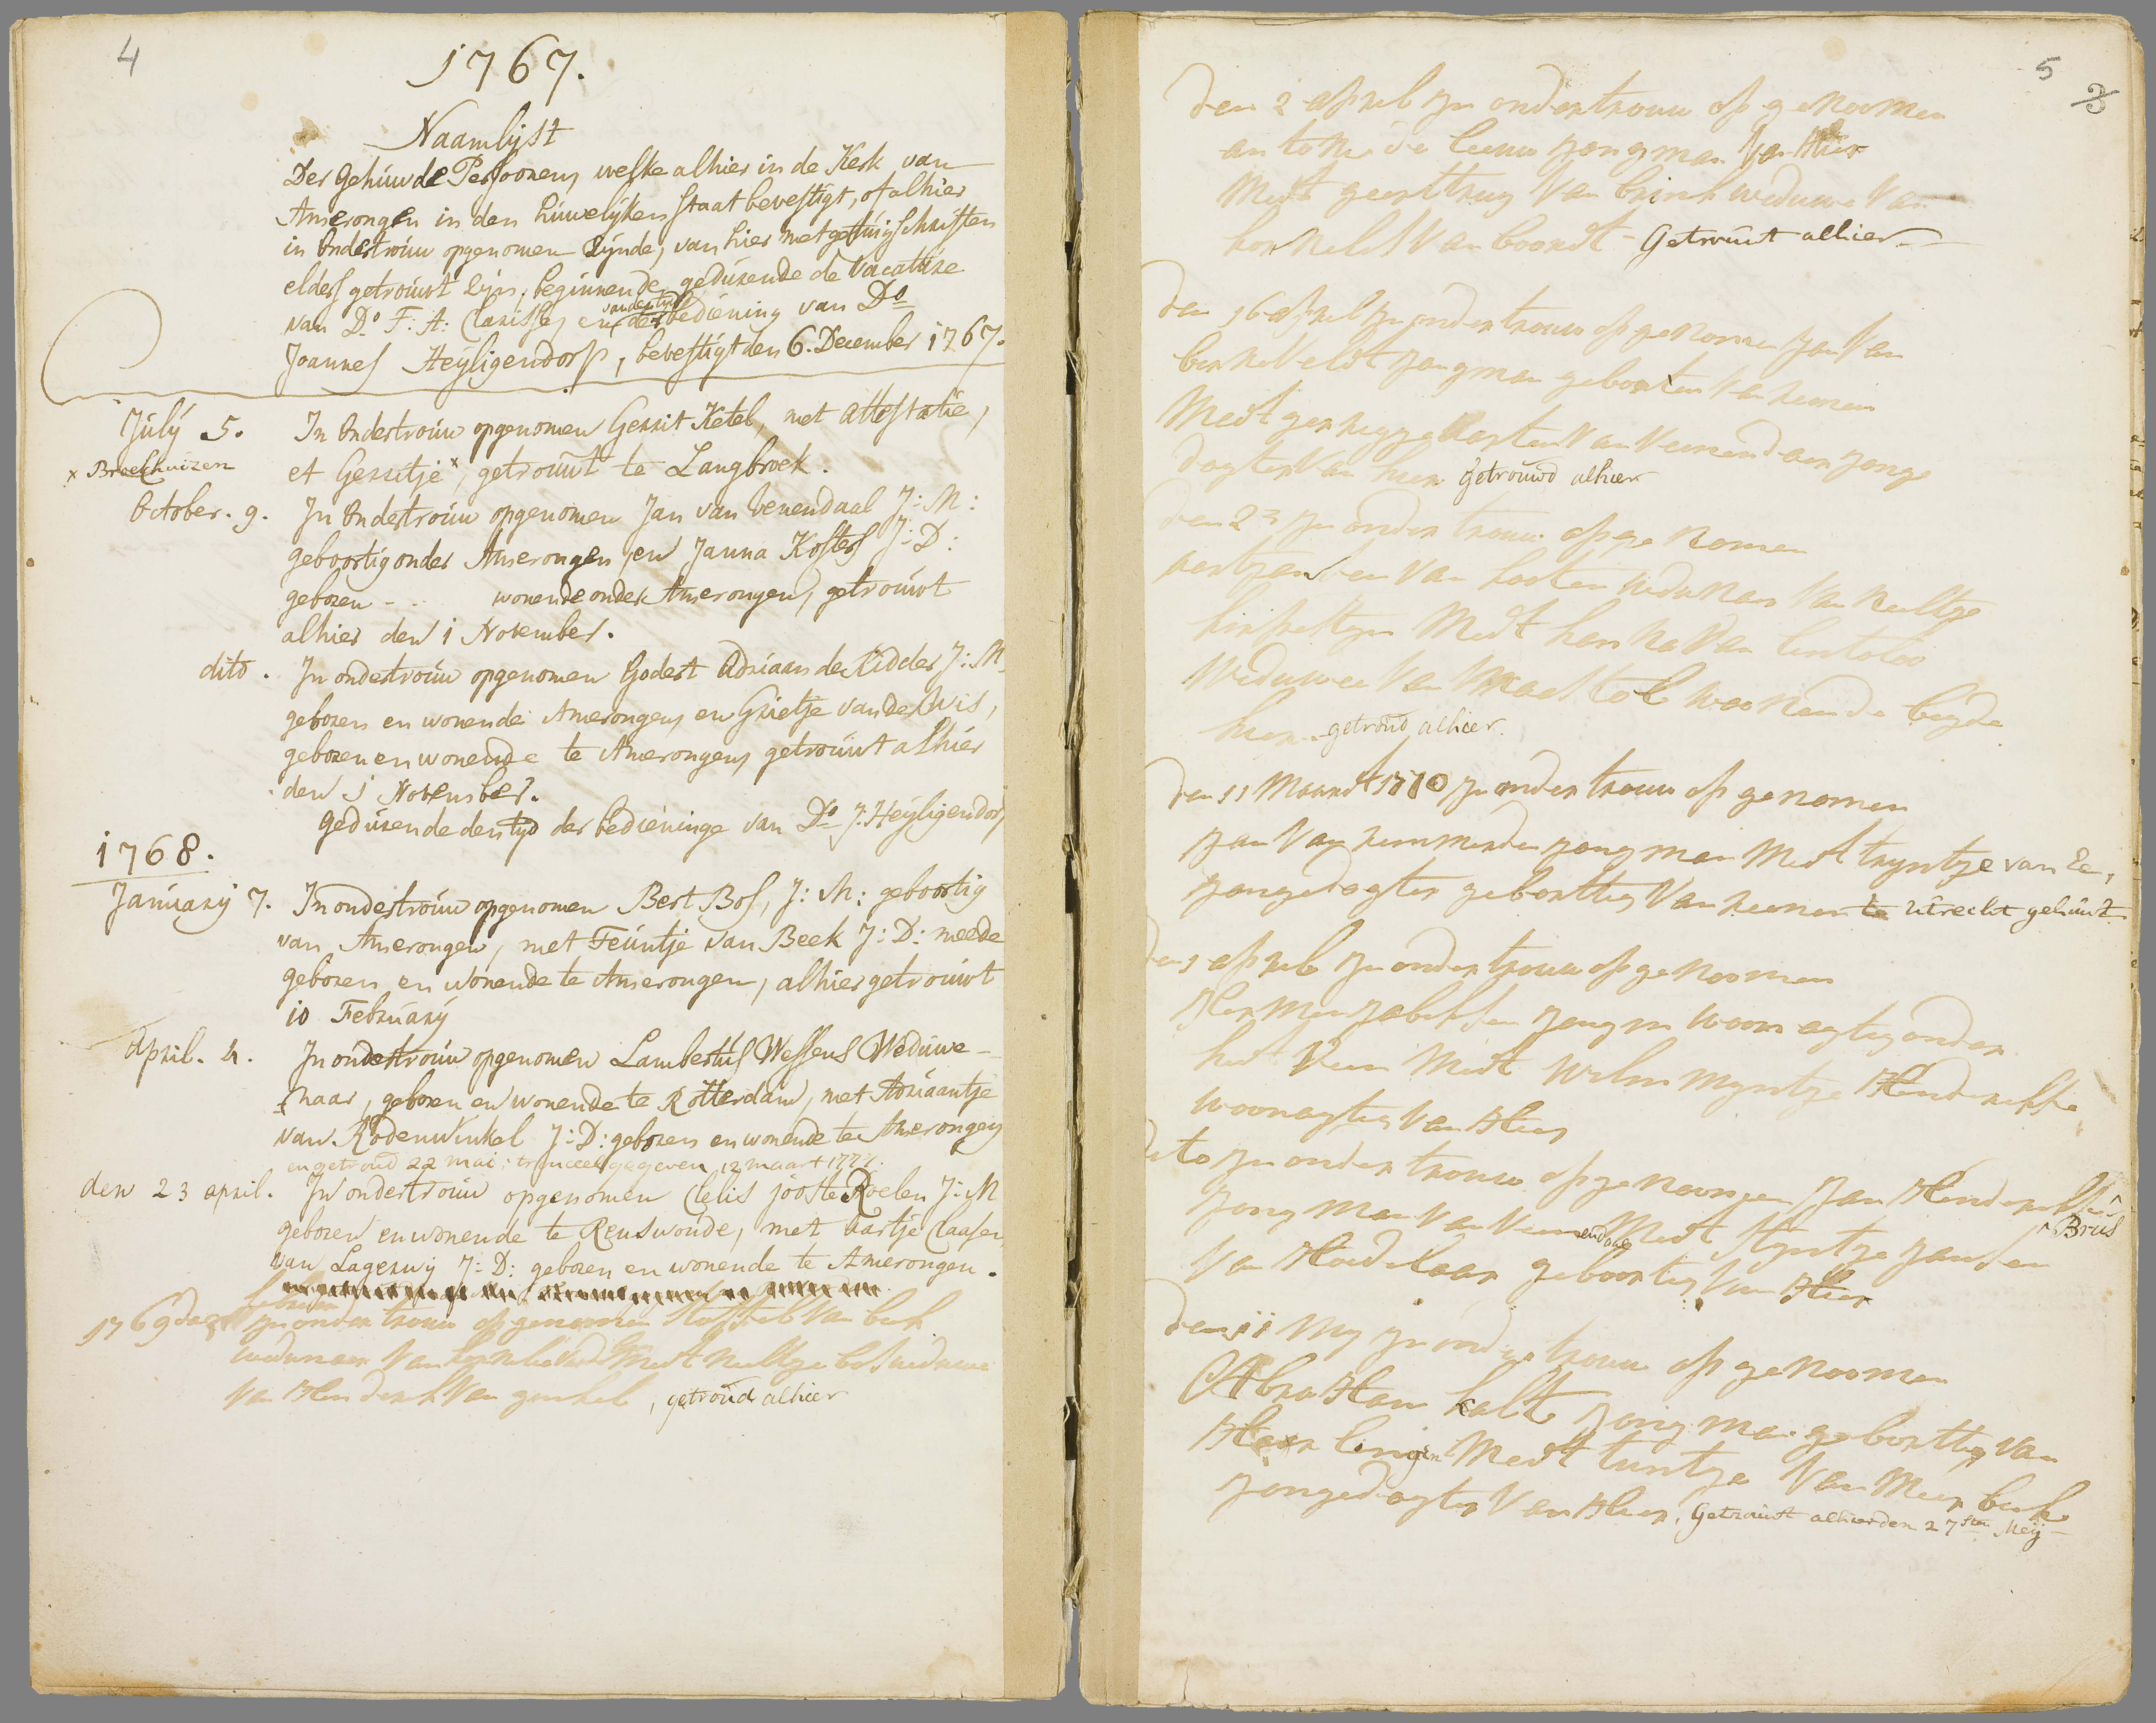 4
1767.
Naamlijst
Der Gehuwde Persoonen, welke alhier in de Kerk van
Amerongen in den huwelijken staat bevestigt, of alhier
in Ondertrouw opgenomen Zijnde, van hier met getuigschriften
elders getrouwt Zijn, beginnende gedurende de Vacature
van Do F: A: Clarisse, en van den tijd der bediening van Do
Joannes Heijligendorp, bevestigt den 6. December 1767.
July 5. In Ondertrouw opgenomen Gerrit Ketel, met attestatie,
x Broekhuizen et Gerritje x, getrouwt te Langbroek.
October. 9. In Ondertrouw opgenomen Jan van Venendaal J: M:
geboortig onder Amerongen, en Janna Kosters J: D:
geboren - .. wonende onder Amerongen, getrouwt
alhier den 1 November.
dito. In ondertrouw opgenomen Godert Adriaan de Ridder J: M
geboren en wonende Amerongen, en Grietje van de
geboren en wonende te Amerongen, getrouwt alhier
den 1 November.
Gedurende den tijd der bedieninge van Do J. Heijligendorp
1768.
January 7. In ondertrouw opgenomen Bert Bos, J: M: geboortig
van Amerongen, met Teuntje van Beek J: D: meede
geboren en wonende te Amerongen, alhier getrouwt
10 February
April. 4. In ondertrouw opgenomen Lambertus Wessens Weduwe-
naar, geboren en wonende te Rotterdam, met Adriaantje
van Rodenwinkel J: D: geboren en wonende te Amerongen
en getroud 22 mai; gegeven 12 maart
den 23 april. In ondertrouw opgenomen Celis jooste Roelen J: M
geboren en wonende te Renswoude, met Aartje Claasen
van Lagerwij J: D: geboren en wonende te Amerongen.
1769 in onder trouw op genomen Stoffel Van beek
wedunaer Van medt neeltge bos weduwe
Van Henderik Van ginkel, getroud alhier
5
3
den 2 april in ondertrouw op genoomen
antonie de leeuw jongman Van Hier
medt geertruy Van brink weduwe Van
kornelis Van boordt - Getrouwt alhier
den 16 april in ondertrouw op genomen jan Van
berkeveldt jongman geborten Van reenen
Medt Van Veenendaer jonge
dogter Van hier Getrouwd alhier
den in onder trouw op ge nomen
aertjansen Van hosten Van neeltge
Medt Van
weduwee Van tol woonende beyde
hier - getroud alhier.
den 11 Maardt 1770 in onder trouw op genomen
jan Van jongman Medt tryntje van Ee,
jongedogter geborttig Van reenen te Utrecht gehuwt
den april in onder trouw op genoomen
Hermen jongm woonagtig onder
het Veen Medt Wilmmyntje Henderikse
woonagtig Van Hier
dito in onder trouw op genoomen Jan Henderikse ^
^ Brus
jongman Van Veenendaal Medt Styntje jansen
Van Hoedelaar geboortig Van Hier
den 11 My in onder trouw op genoomen
Abraham kalte jong man geborttig Van
Medt tuntje Van Meerbeek
jongedogter Van Hier, Getrouwt alhier den 27sten Meij